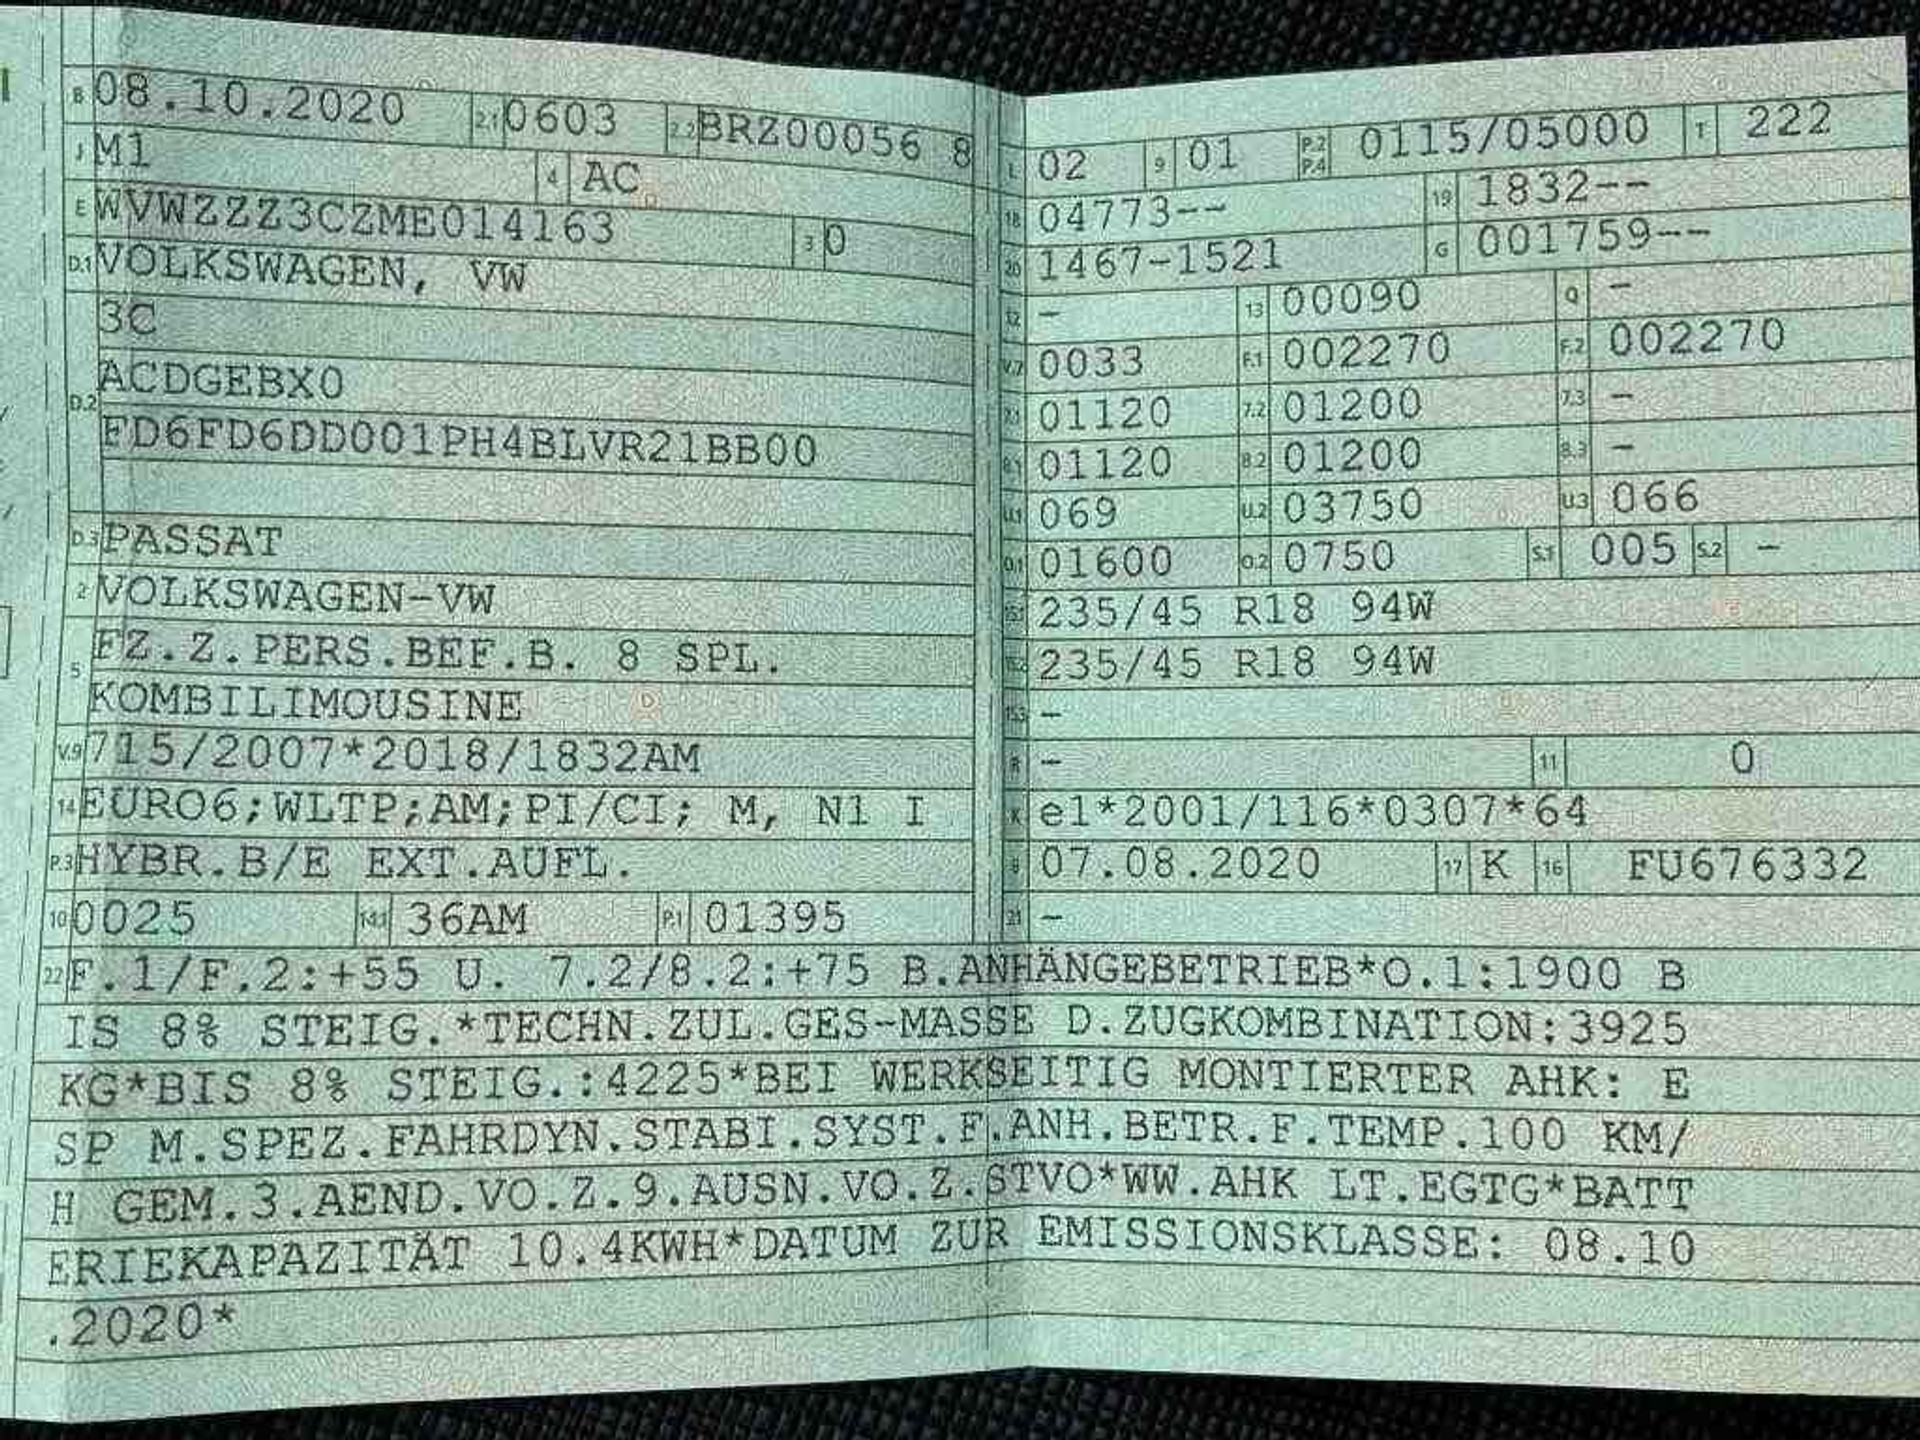 B 08.10.2020 2.1 0603 2.2 BRZ00056 8
J M1 4 AC
E WVWZZZ3CZME014163 3 0
D.1 VOLKSWAGEN, VW
3C
D.2 ACDGEBX0
FD6FD6DD001PH4BLVR21BB00
D.3 PASSAT
2 VOLKSWAGEN-VW
5 FZ.Z.PERS.BEF.B. 8 SPL.
KOMBILIMOUSINE
V.9 715/2007*2018/1832AM
14 EURO6;WLTP;AM;PI/CI; M, N1 I
P.3 HYBR.B/E EXT.AUFL.
10 0025 14.1 36AM P.1 01395
L 02 9 01 P.2 P.4 0115/05000 T 222
18 04773-- 19 1832--
20 1467-1521 G 001759--
12 - 13 00090 Q -
V.7 0033 F.1 002270 F.2 002270
7.1 01120 7.2 01200 7.3 -
8.1 01120 8.2 01200 8.3 -
U.1 069 U.2 03750 U.3 066
O.1 01600 O.2 0750 S.1 005 S.2 -
15.1 235/45 R18 94W
15.2 235/45 R18 94W
15.3 -
R - 11 0
K e1*2001/116*0307*64
6 07.08.2020 17 K 16 FU676332
21 -
22 F.1/F.2:+55 U. 7.2/8.2:+75 B.ANHÄNGEBETRIEB*O.1:1900 B
IS 8% STEIG.*TECHN.ZUL.GES-MASSE D.ZUGKOMBINATION:3925
KG*BIS 8% STEIG.:4225*BEI WERKSEITIG MONTIERTER AHK: E
SP M.SPEZ.FAHRDYN.STABI.SYST.F.ANH.BETR.F.TEMP.100 KM/
H GEM.3.AEND.VO.Z.9.AUSN.VO.Z.STVO*WW.AHK LT.EGTG*BATT
ERIEKAPAZITÄT 10.4KWH*DATUM ZUR EMISSIONSKLASSE: 08.10
.2020*